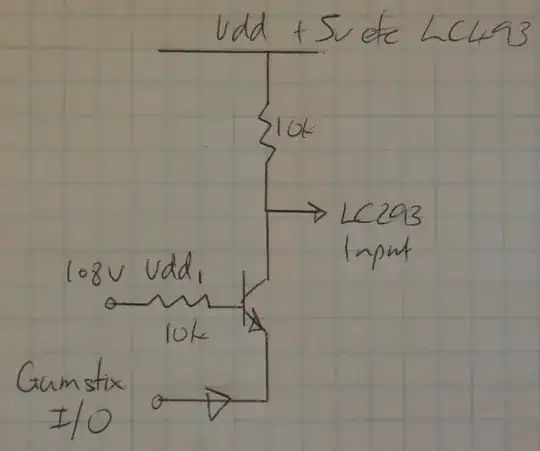 Vdd +5v etc LC493
10k
LC293
Input
108V Vdd1
10k
Gumstix
I/O